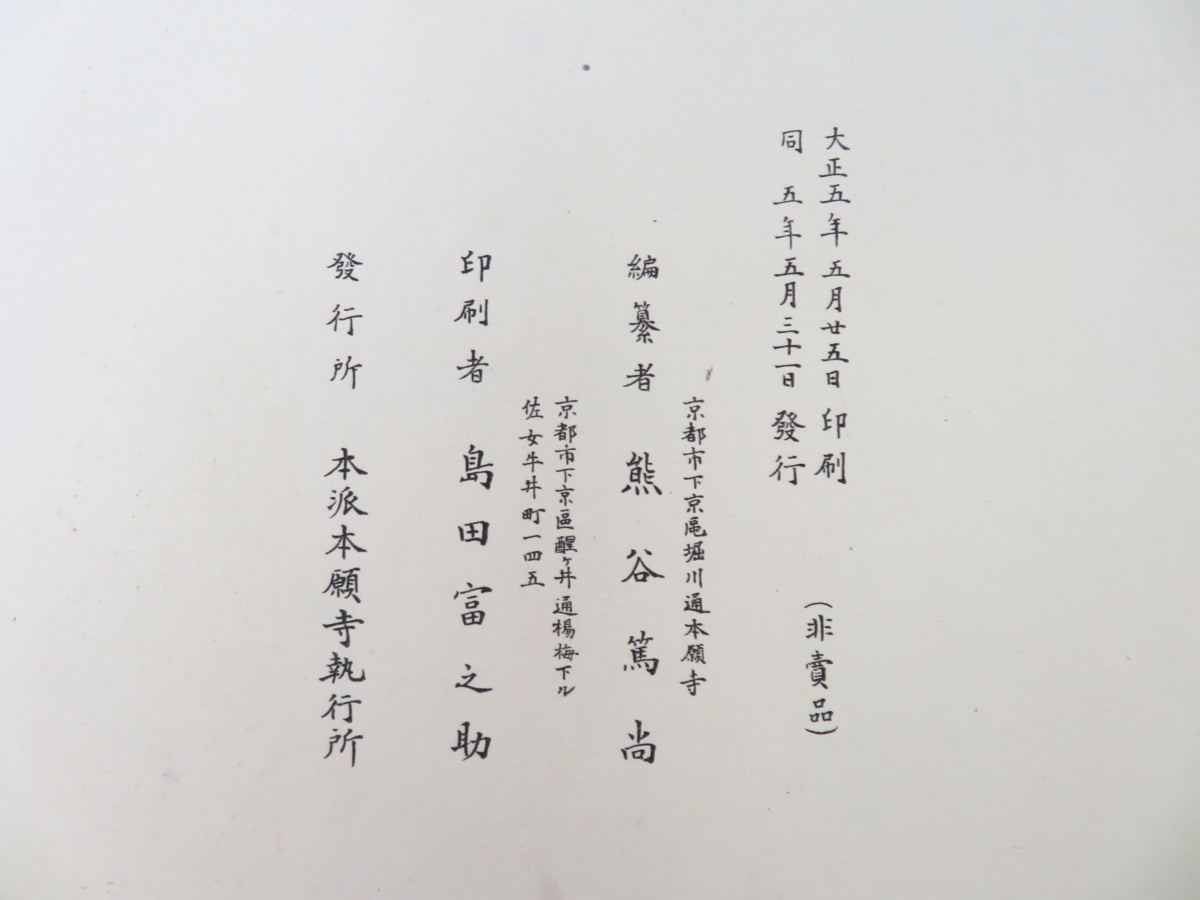 大正五年五月廿五日印刷
同　五年五月三十一日發行
（非賣品）
京都市下京區堀川通本願寺
編纂者　熊谷篤尚
京都市下京區醒ヶ井通楊梅下ル
佐女牛井町一四五
印刷者　島田富之助
發行所　本派本願寺執行所